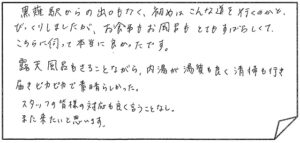 黒薙駅からの出口もなく、初めはこんな道を行くのかと
びっくりしましたが、お食事もお風呂もとてもすばらしくて、
こちらに伺って本当に良かったです。
露天風呂もさることながら、内湯が湯質も良く清掃も行き
届きピカピカで素晴らしかった。
スタッフの皆様の対応も良く言うことなし。
また来たいと思います。